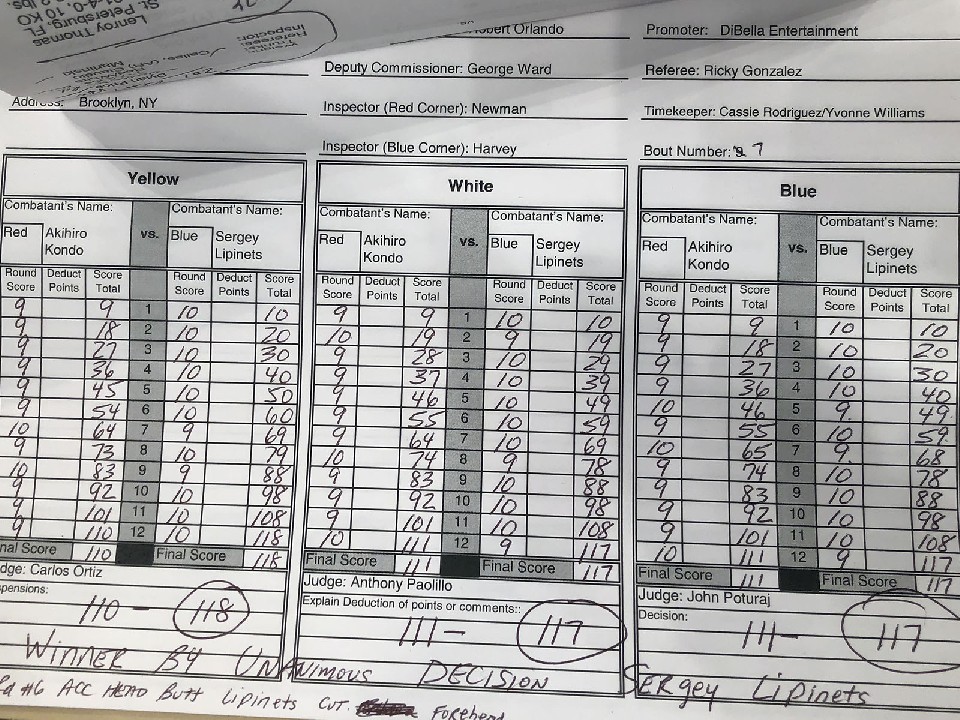 Lenroy Thomas
St. Petersburg, FL
Referee:
Inspector:
Address: Brooklyn, NY
Orlando
Deputy Commissioner: George Ward
Inspector (Red Corner): Newman
Inspector (Blue Corner): Harvey
Promoter: DiBella Entertainment
Referee: Ricky Gonzalez
Timekeeper: Cassie Rodriguez/Yvonne Williams
Bout Number: 7
Yellow
Combatant's Name: Combatant's Name:
Red Akihiro Kondo vs. Blue Sergey Lipinets
Round Score Deduct Points Score Total Round Score Deduct Points Score Total
9 9 1 10 10
9 18 2 10 20
9 27 3 10 30
9 36 4 10 40
9 45 5 10 50
9 54 6 10 60
10 64 7 9 69
9 73 8 10 79
10 83 9 9 88
9 92 10 10 98
9 101 11 10 108
9 110 12 10 118
Final Score 110 Final Score 118
Judge: Carlos Ortiz
110 - 118
White
Combatant's Name: Combatant's Name:
Red Akihiro Kondo vs. Blue Sergey Lipinets
Round Score Deduct Points Score Total Round Score Deduct Points Score Total
9 9 1 10 10
10 19 2 9 19
9 28 3 10 29
9 37 4 10 39
9 46 5 10 49
9 55 6 10 59
9 64 7 10 69
10 74 8 9 78
9 83 9 10 88
9 92 10 10 98
9 101 11 10 108
10 111 12 9 117
Final Score 111 Final Score 117
Judge: Anthony Paolillo
Explain Deduction of points or comments::
111 - 117
Blue
Combatant's Name: Combatant's Name:
Red Akihiro Kondo vs. Blue Sergey Lipinets
Round Score Deduct Points Score Total Round Score Deduct Points Score Total
9 9 1 10 10
9 18 2 10 20
9 27 3 10 30
9 36 4 10 40
10 46 5 9 49
9 55 6 10 59
10 65 7 9 68
9 74 8 10 78
9 83 9 10 88
9 92 10 10 98
9 101 11 10 108
10 111 12 9 117
Final Score 111 Final Score 117
Judge: John Poturaj
Decision:
111 - 117
WINNER BY UNANIMOUS DECISION SERgey LipinetS
Rd #6 ACC HEAD BUTT Lipinets CUT. Forehead